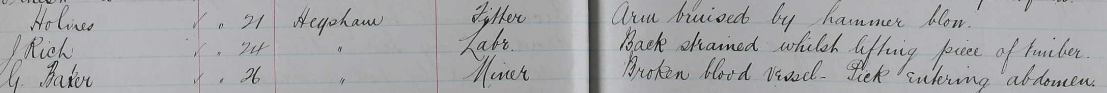 Holmes √ " 21 Heysham Fitter Arm bruised by hammer blow.
J Rich √ " 24 " Labr. Back strained whilst lifting piece of timber.
G. Baker √ " 26 " Miner Broken blood vessel - Pick entering abdomen.